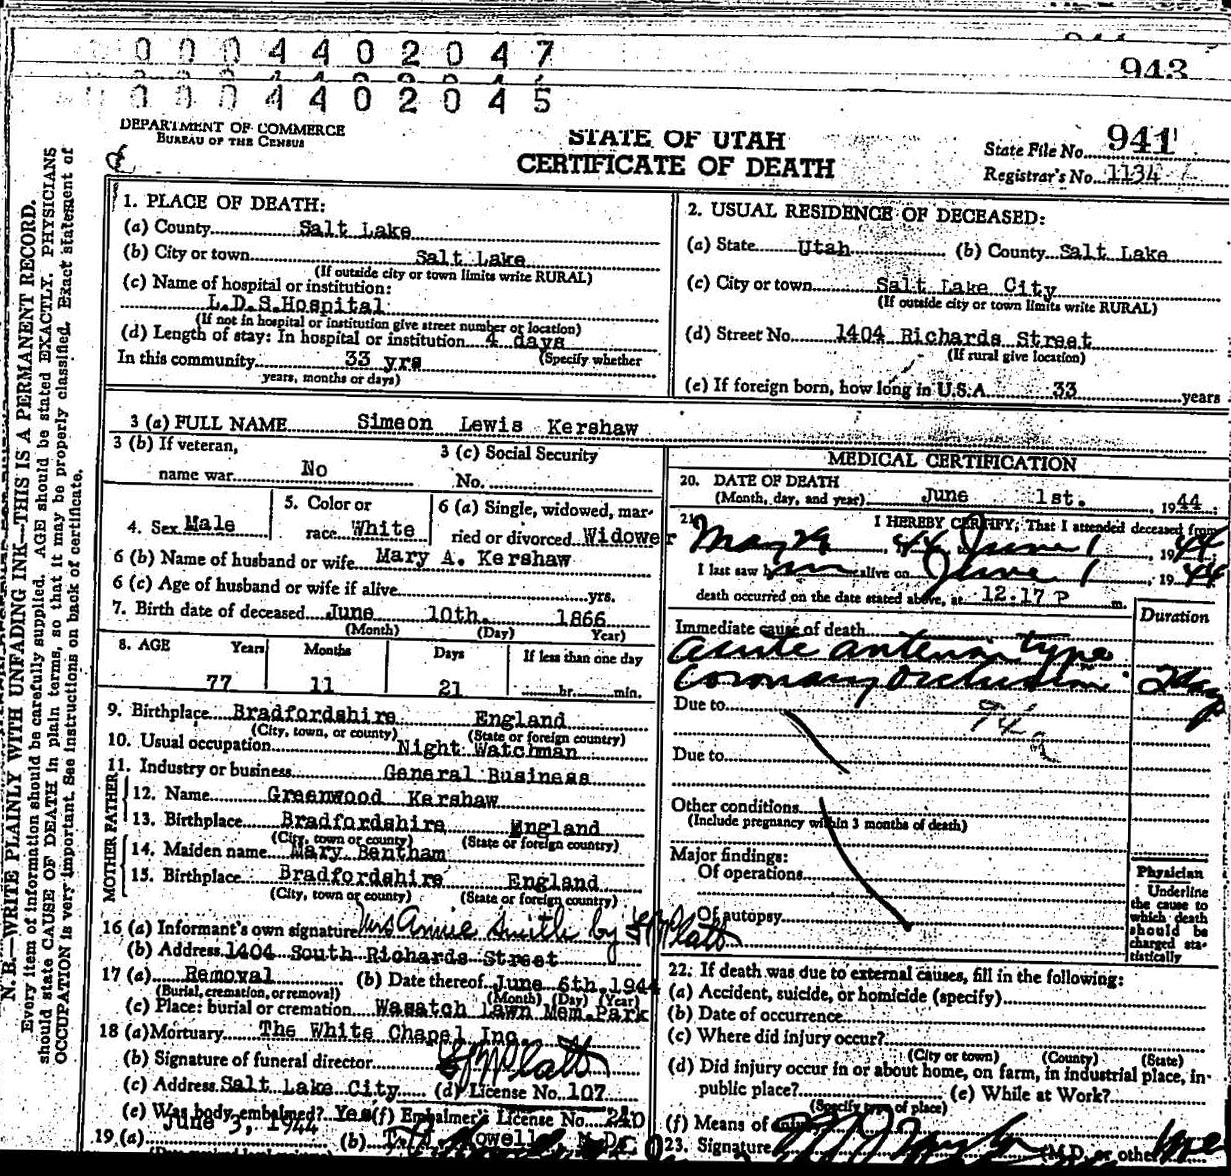 0 0 0 4 4 0 2 0 4 7
943
0 0 0 4 4 0 2 0 4 5
DEPARTMENT OF COMMERCE
BUREAU OF THE CENSUS
STATE OF UTAH
CERTIFICATE OF DEATH
State File No. 941
Registrar's No. 1134
N. B.—WRITE PLAINLY WITH UNFADING INK—THIS IS A PERMANENT RECORD.
Every item of information should be carefully supplied. AGE should be stated EXACTLY. PHYSICIANS
should state CAUSE OF DEATH in plain terms, so that it may be properly classified. Exact statement of
OCCUPATION is very important. See instructions on back of certificate.
1. PLACE OF DEATH:
(a) County Salt Lake
(b) City or town Salt Lake
(If outside city or town limits write RURAL)
(c) Name of hospital or institution:
L.D.S.Hospital
(If not in hospital or institution give street number or location)
(d) Length of stay: In hospital or institution 4 days
(Specify whether
In this community 33 yrs
years, months or days)
2. USUAL RESIDENCE OF DECEASED:
(a) State Utah (b) County Salt Lake
(c) City or town Salt Lake City
(If outside city or town limits write RURAL)
(d) Street No. 1404 Richards Street
(If rural give location)
(e) If foreign born, how long in U.S.A. 33 years
3 (a) FULL NAME Simeon Lewis Kershaw
3 (b) If veteran,
name war No
3 (c) Social Security
No.
4. Sex Male
5. Color or
race White
6 (a) Single, widowed, mar-
ried or divorced Widower
6 (b) Name of husband or wife Mary A. Kershaw
6 (c) Age of husband or wife if alive yrs.
7. Birth date of deceased June 10th. 1866
(Month) (Day) Year)
8. AGE Years Months Days If less than one day
77 11 21 hr. min.
9. Birthplace Bradfordshire England
(City, town, or county) (State or foreign country)
10. Usual occupation Night Watchman
11. Industry or business General Business
FATHER
12. Name Greenwood Kershaw
13. Birthplace Bradfordshire England
(City, town or county) (State or foreign country)
MOTHER
14. Maiden name Mary Bentham
15. Birthplace Bradfordshire England
(City, town or county) (State or foreign country)
16 (a) Informant's own signature Mrs Annie Smith by Platt
(b) Address 1404 South Richards Street
17 (a) Removal (b) Date thereof June 6th, 1944
(Burial, cremation, or removal) (Month) (Day) (Year)
(c) Place: burial or cremation Wasatch Lawn Mem.Park
18 (a) Mortuary The White Chapel Inc.
(b) Signature of funeral director Platt
(c) Address Salt Lake City (d) License No. 107
(e) Was body embalmed? Yes (f) Embalmer's License No. 240
19. (a) June 3, 1944 (b) M.D.
MEDICAL CERTIFICATION
20. DATE OF DEATH
(Month, day, and year) June 1st. , 1944
21. I HEREBY CERTIFY; That I attended deceased from
May 29, 44 to June 1 1944
I last saw him alive on June 1, 1944
death occurred on the date stated above, at 12.17 P m.
Duration
Immediate cause of death
acute anterior type
Coronary Occlusion 2 days
Due to
94a
Due to
Other conditions
(Include pregnancy within 3 months of death)
Major findings:
Of operations
Of autopsy
Physician
Underline
the cause to
which death
should be
charged sta-
tistically
22. If death was due to external causes, fill in the following:
(a) Accident, suicide, or homicide (specify)
(b) Date of occurrence
(c) Where did injury occur?
(City or town) (County) (State)
(d) Did injury occur in or about home, on farm, in industrial place, in
public place? (e) While at Work?
(Specify type of place)
(f) Means of injury
23. Signature (M.D. or other